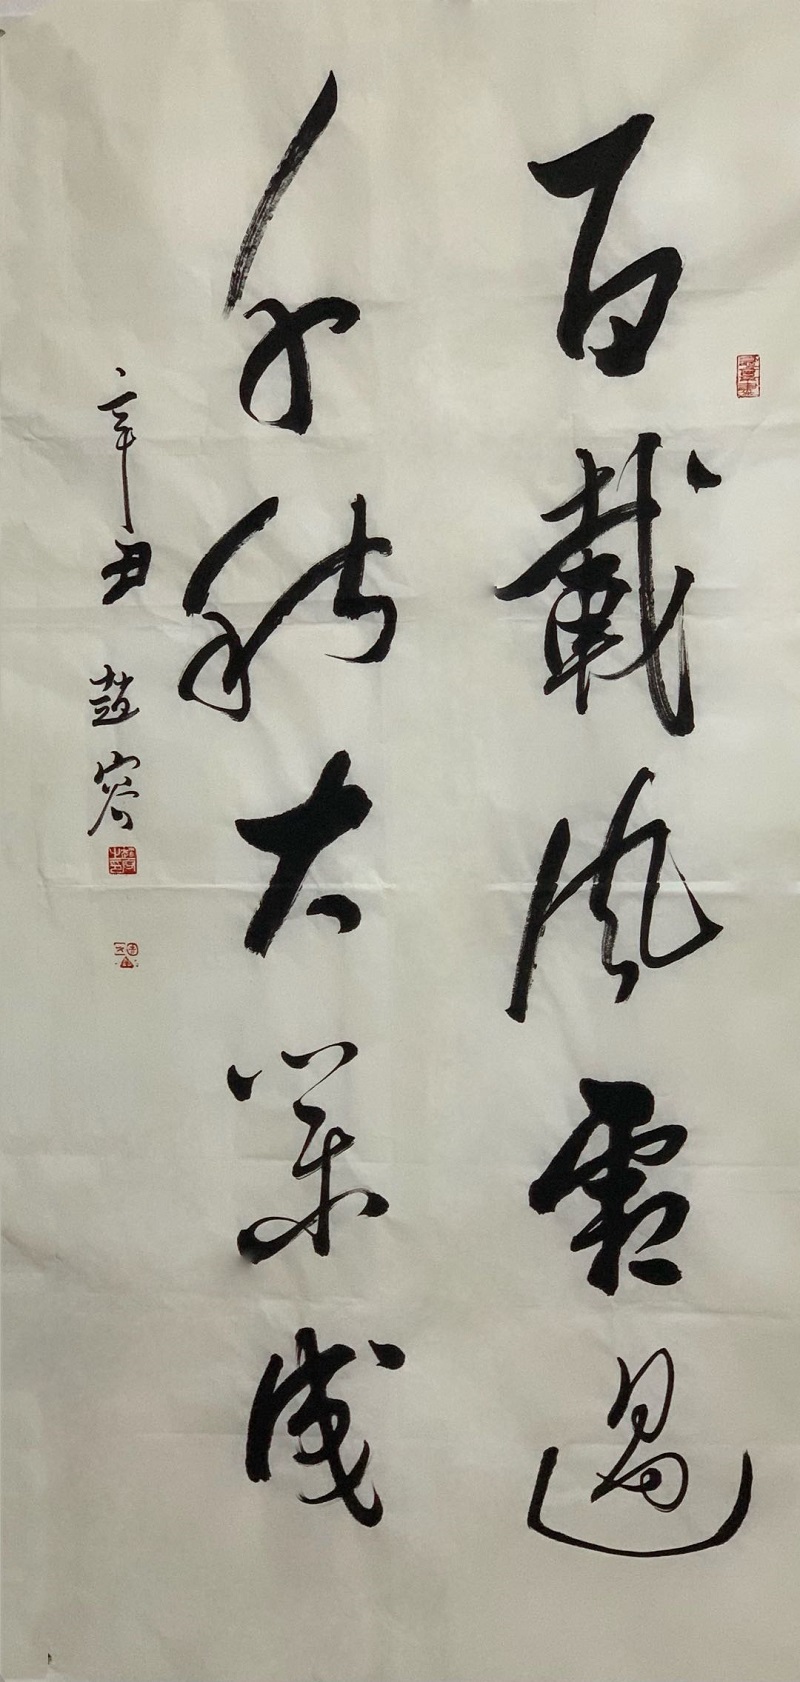 百載風霜過
千秋大業成
辛丑 趙容